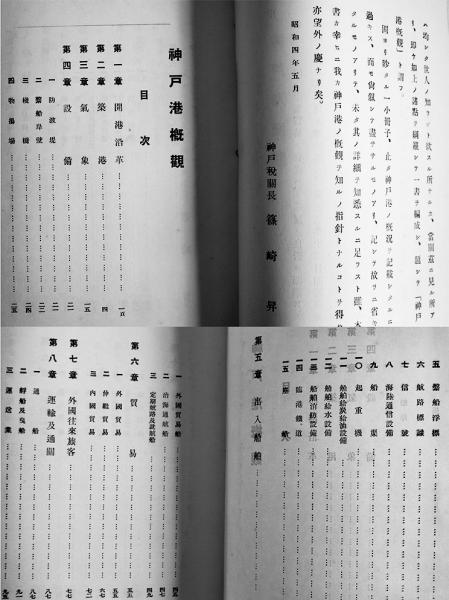 ハ均シク世人ノ知ラント欲スル所ナルカ、當關茲ニ見ル所ア
リ、即チ如上ノ諸點ヲ網羅シテ一書ヲ編成シ、題シテ「神戸
港概觀」ト謂フ。
過キス、而モ尙叙シテ盡ササルモノアリ、記シテ故ラニ省キ
タルモノアリテ、未タ其ノ詳細ヲ知悉スルニ足ラスト雖、本
書カ幸ヒニ我カ神戸港ノ概觀ヲ知ルノ指針トナルコトヲ得
亦望外ノ慶ナリ矣。
昭和四年五月
神戸税關長 篠崎昇
神戸港概觀
目次
第一章 開港沿革
第二章 築港
第三章 氣象 一五
第四章 設備 二一
一 防波堤 二一
二 繫船岸壁
三 棧橋 二四
四 物揚場 二五
五 繫船浮標
六 航路標識
七 信號
八 海陸通信設備
九 船渠
一〇 起重機
一一 船舶給炭給油設備
一二 船舶給水設備
一三 船舶消防設備
一四 臨港鐵道
第五章 出入船舶
一 外國貿易船
二 沿海通航船
三 定期航路及就航船
第六章 貿易
一 外國貿易
二 仲繼貿易
三 內國貿易
第七章 外國往來旅客
第八章 運輸及通關
一 通船
二 艀船及曳船
三 運送業